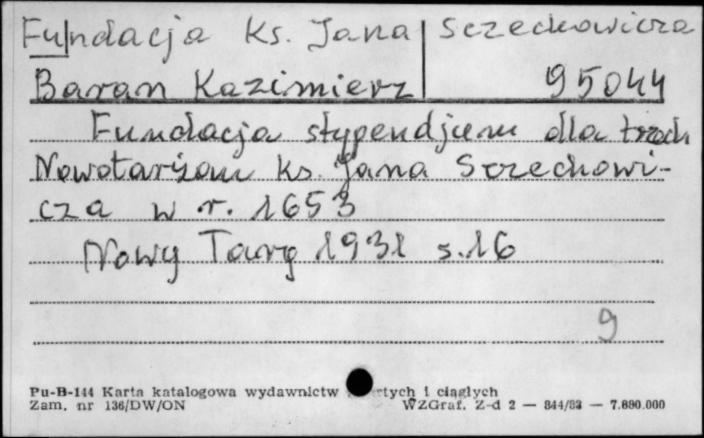 Fundacja Ks. Jana Sczechowicza
Baran Kazimierz 95044
Fundacja stypendjum dla trzech
Nowotarżan ks. Jana Sczechowi-
cza w r. 1653
Nowy Targ 1931 s.16
9
Pu-B-144 Karta katalogowa wydawnictw i ciągłych
Zam. nr 136/DW/ON WZGraf. Z-d 2 — 844/83 — 7.880.000